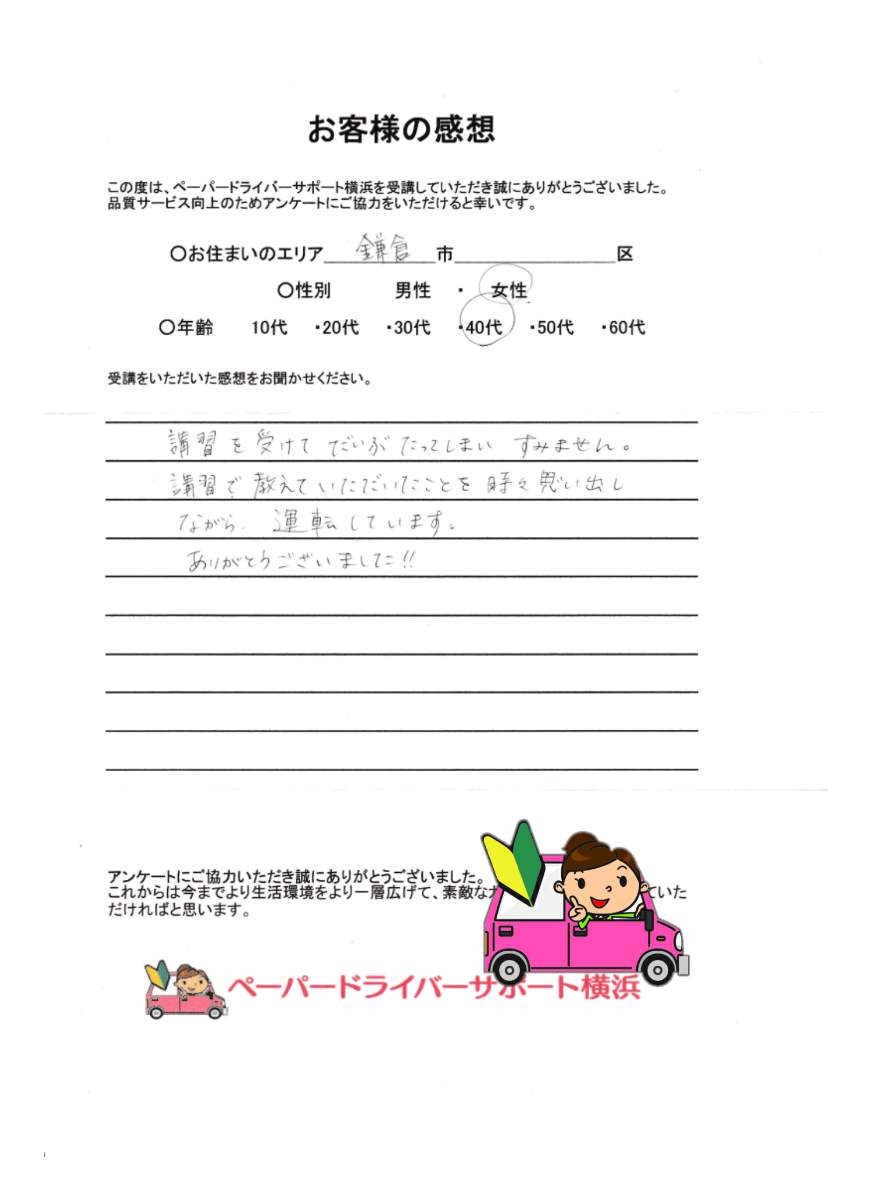 お客様の感想
この度は、ペーパードライバーサポート横浜を受講していただき誠にありがとうございました。
品質サービス向上のためアンケートにご協力をいただけると幸いです。
〇お住まいのエリア 鎌倉 市 区
〇性別 男性 ・ 女性
〇年齢 10代 ・20代 ・30代 ・40代 ・50代 ・60代
受講をいただいた感想をお聞かせください。
講習を受けて だいぶ たってしまい すみません。
講習で 教えて いただいたことを 時々 思い出し
ながら、運転しています。
ありがとうございました!!
アンケートにご協力いただき誠にありがとうございました。
これからは今までより生活環境をより一層広げて、素敵な ていた
だければと思います。
ペーパードライバーサポート横浜